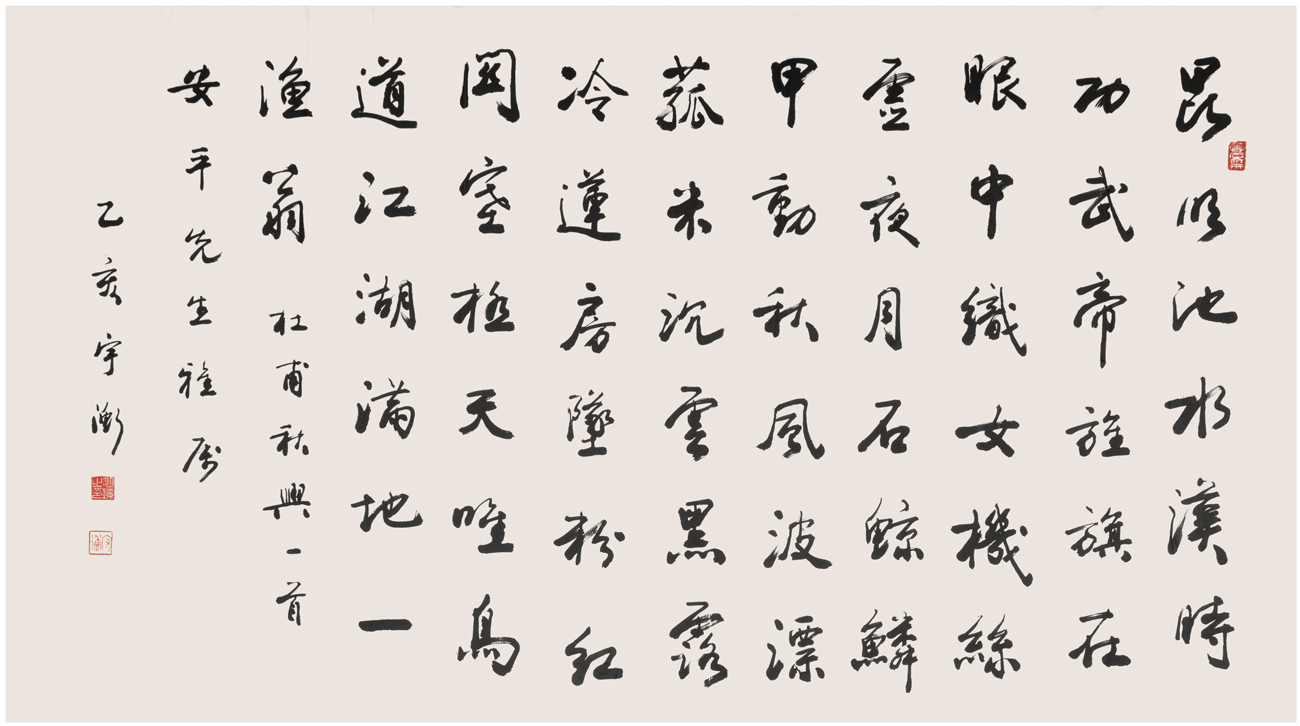 昆明池水漢時
功武帝旌旗在
眼中織女機絲
虛夜月石鯨鱗
甲動秋風波漂
菰米沉雲黑露
冷蓮房墜粉紅
關塞極天唯鳥
道江湖滿地一
漁翁 杜甫秋興一首
安平先生雅属
乙亥宇衡